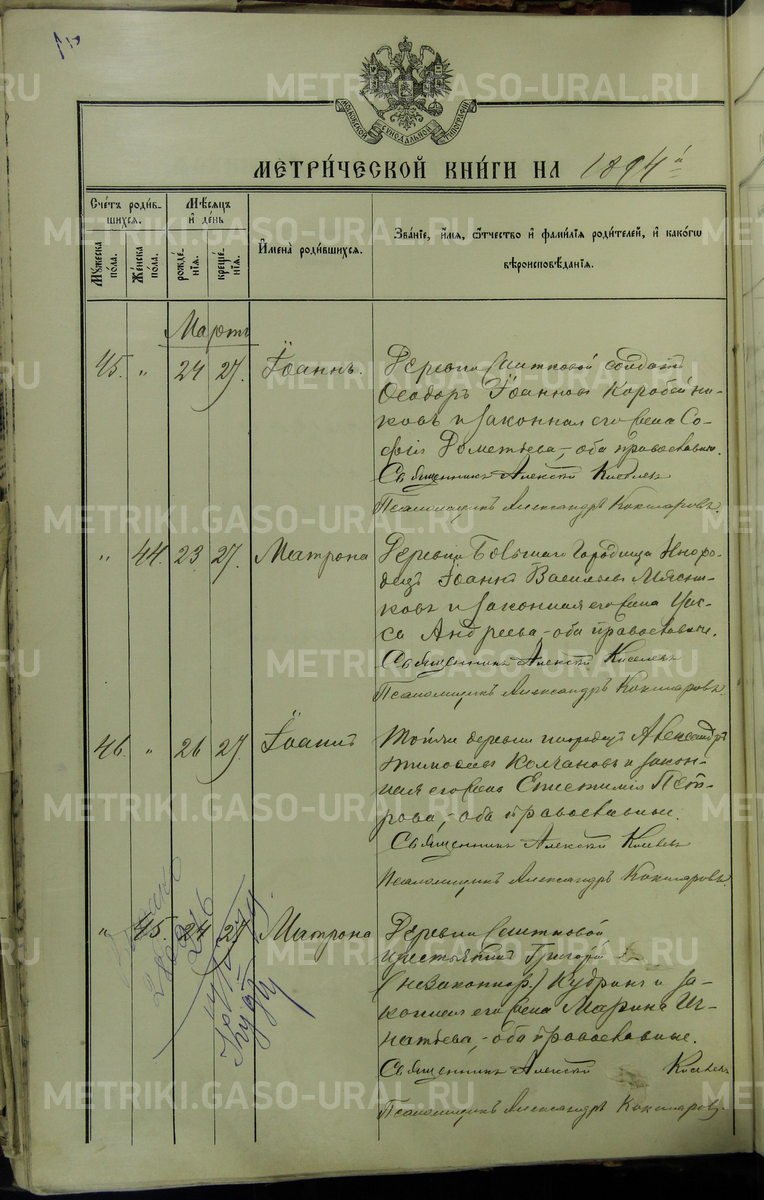 МЕТРИ́ЧЕСКОЙ КНИ́ГИ НА 1894 й
Сче́тъ роди́в-
шихся.
Мѣ́сяцъ
и де́нь
Му́жеска
по́ла.
Же́нска
по́ла.
рожде́-
нія.
креще́-
нія.
Имена̀ роди́вшихся.
Зва́ніе, и́мя, о́тчество и фами́лія роди́телей, и како́гѡ
вѣроисповѣ́данія.
Мартъ
45. " 24 27. Іоаннъ.
Деревни солдатъ
Ѳеодоръ Іоанновъ Коробейни-
ковъ и законная его жена Со-
фія Дометіева, оба православные.
Священникъ Алексѣй Киселевъ
Псаломщикъ Александръ Кокшаровъ.
" 44. 23 27. Матрона
Деревни Большаго Городища Иноро-
децъ Іоаннъ Васильевъ Мясни-
ковъ и законная его жена
Андреева оба православные.
Священникъ Алексѣй Киселевъ
Псаломщикъ Александръ Кокшаровъ.
46. " 26 27. Іоаннъ
Той же деревни инородецъ Александръ
Колчановъ и закон-
ная его жена Епистимія Пет-
рова, оба православные.
Священникъ Алексѣй Киселевъ
Псаломщикъ Александръ Кокшаровъ.
" 45. 24 27 Матрона
Деревни
крестьянинъ Григорій
(незаконнор.) Кудринъ и за-
конная его жена Марина Иг-
натьева, оба православные.
Священникъ Алексѣй Киселевъ
Псаломщикъ Александръ Кокшаровъ.
METRIKI.GASO-URAL.RU